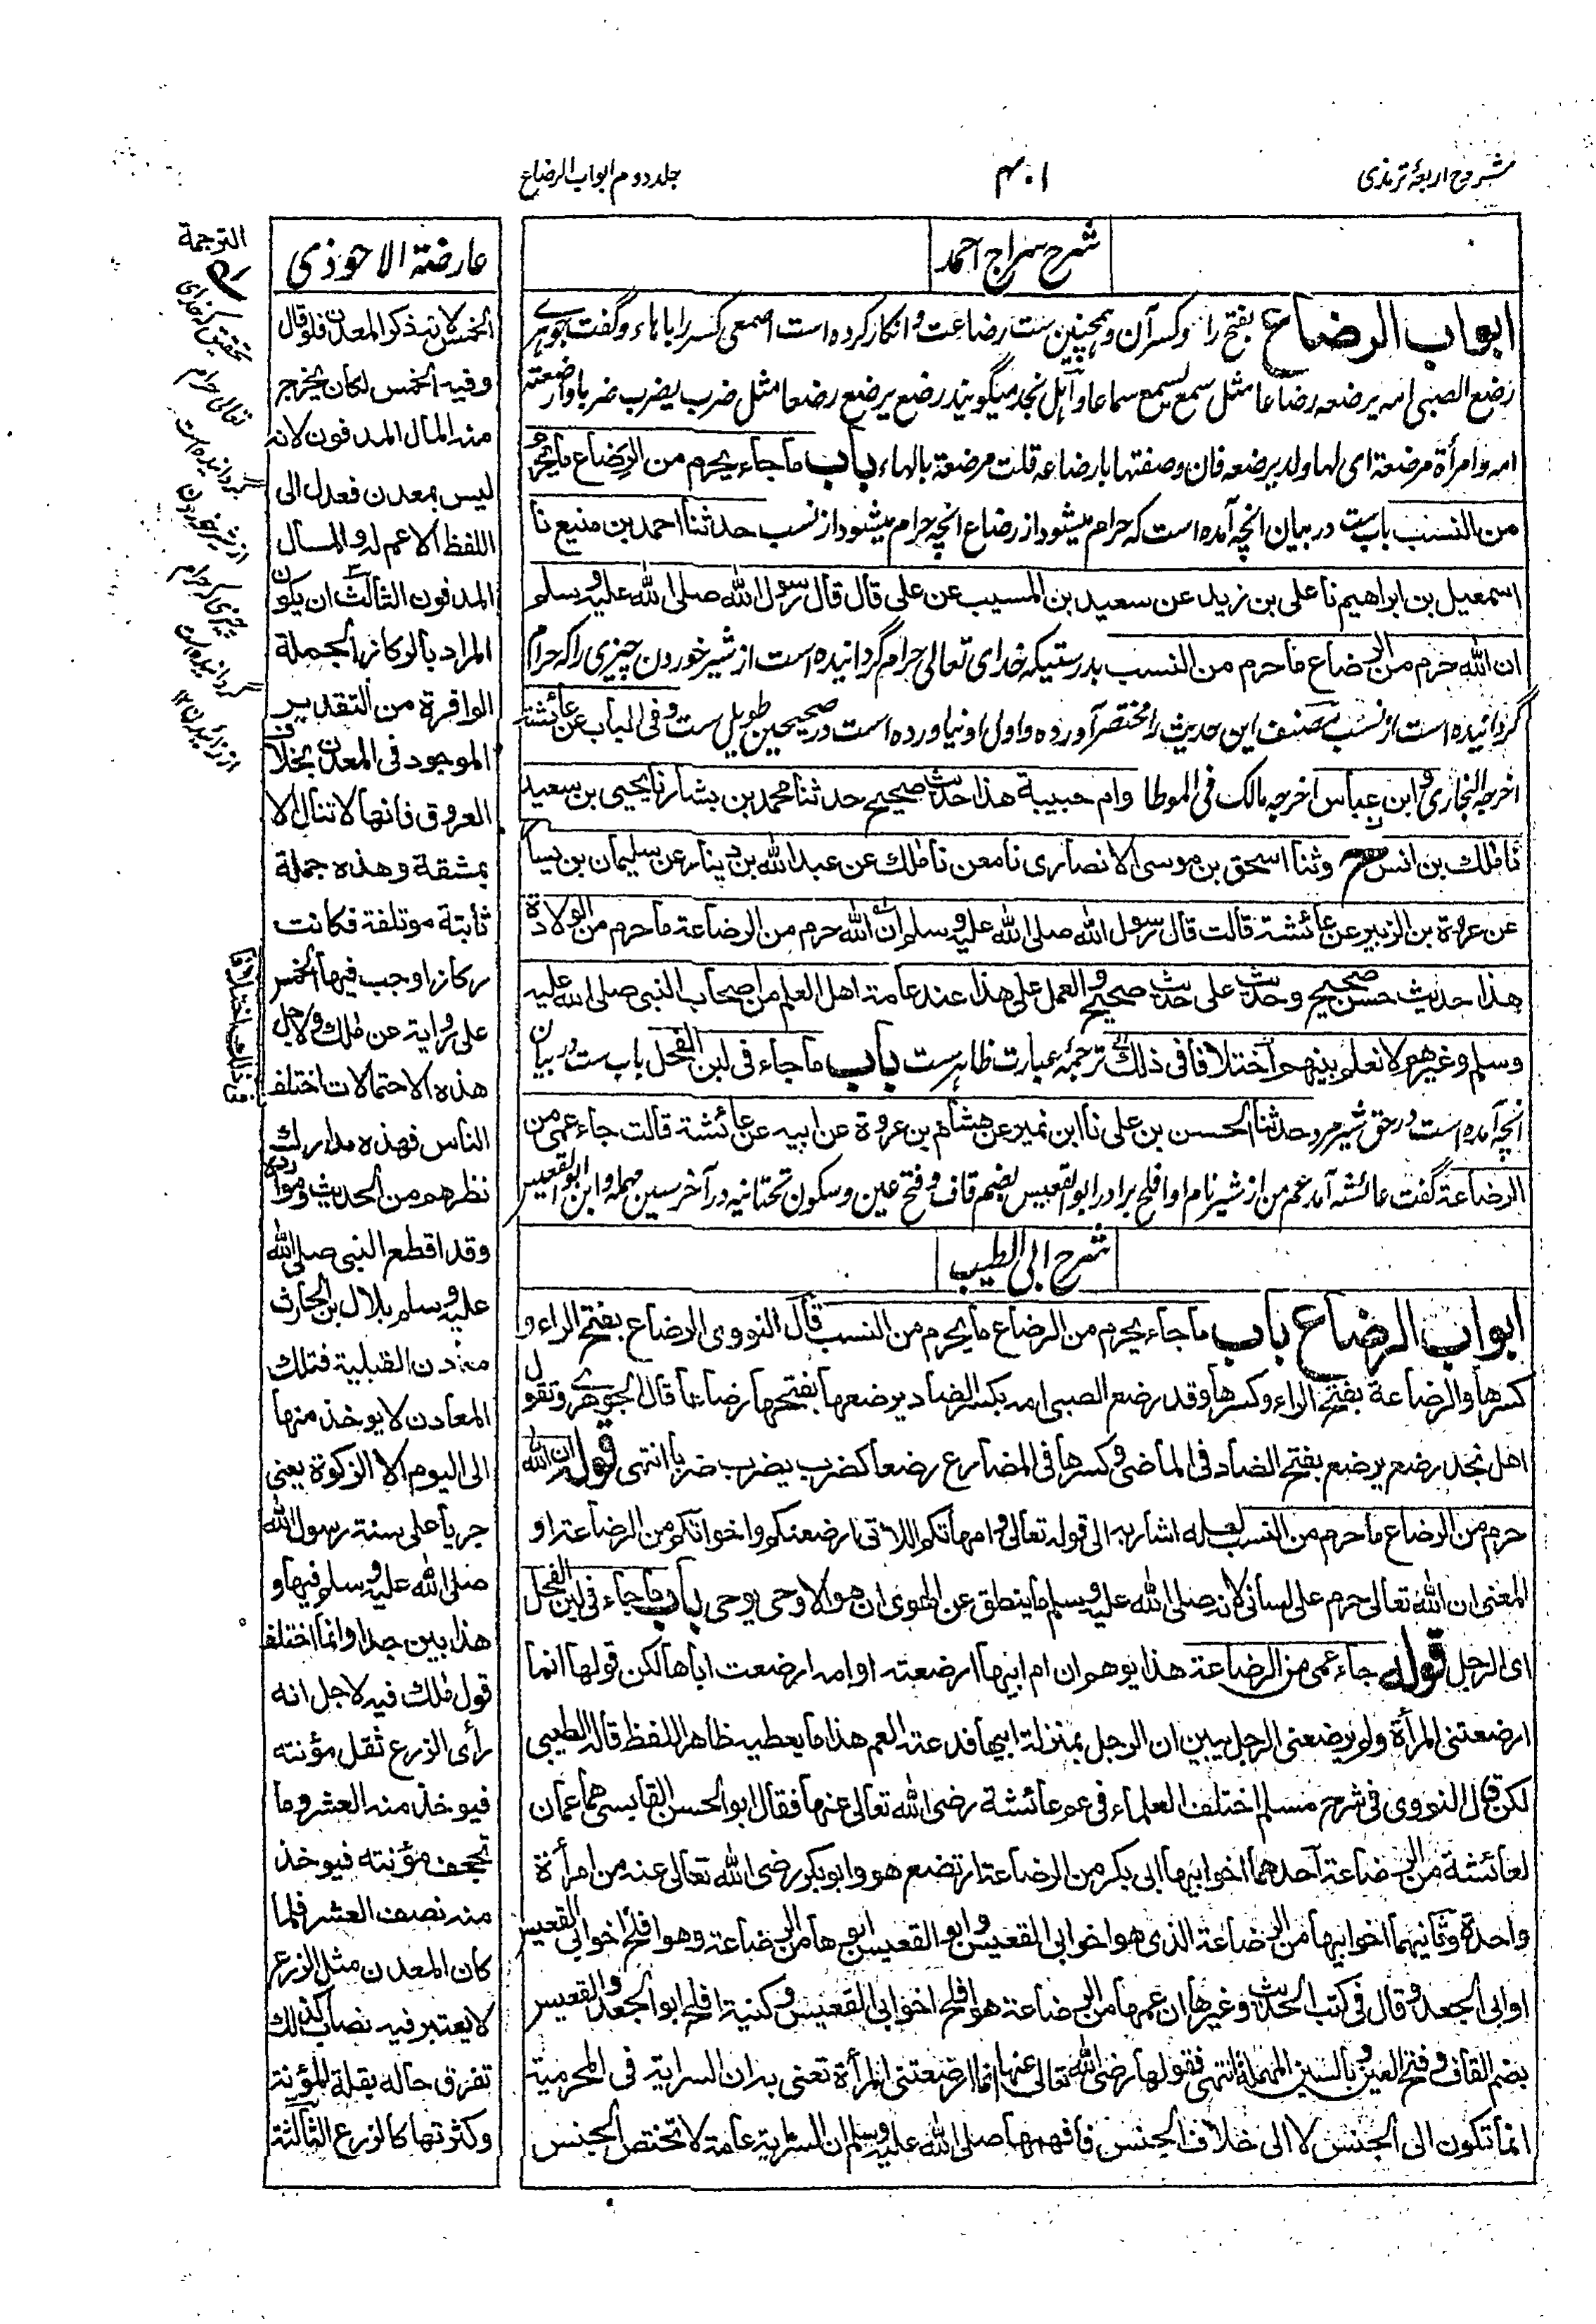 شروح اربعۂ ترمذی
۴۰۱
جلد دوم ابواب الرضاع
شرح سراج احمد
ابواب الرضاع بفتح را و کسر آن و همچنین ست رضاعت و انکار کرده است اصمعی کسر را با هاء و گفت جوهرے
رضع الصبی امه یرضعه رضاعا مثل سمع یسمع سماعا و اهل نجد میگویند رضع یرضع رضعا مثل ضرب یضرب ضربا وارضعته
امه وامرأة مرضعة ای لها ولد یرضعه فان وصفتها بارضاعه قلت مرضعة بالهاء باب ما جاء یحرم من الرضاع ما یحرم
من النسب باب ست در بیان انچه آمده است که حرام میشود از رضاع انچه حرام میشود از نسب حدثنا احمد بن منیع نا
اسمعیل بن ابراهیم نا علی بن زید عن سعید بن المسیب عن علی قال قال رسول الله صلی الله علیه وسلم
ان الله حرم من الرضاع ما حرم من النسب بدرستیکه خدای تعالی حرام گردانیده است از شیر خوردن چیزی را که حرام
گردانیده است از نسب مصنف این حدیث را مختصر آورده و اول او نیاورده است و در صحیحین طویل ست وفی الباب عن عائشة
اخرجه البخاری و ابن عباس اخرجه مالک فی الموطا وام حبیبة هذا حدیث صحیح حدثنا محمد بن بشار نا یحیی بن سعید
نا مالك بن انس ح وثنا اسحق بن موسی الانصاری نا معن نا مالك عن عبد الله بن دینار عن سلیمان بن یسار
عن عروة بن الزبیر عن عائشة قالت قال رسول الله صلی الله علیه وسلم ان الله حرم من الرضاعة ما حرم من الولادة
هذا حدیث حسن صحیح وحدیث علی حدیث صحیح والعمل علی هذا عند عامة اهل العلم من اصحاب النبی صلی الله علیه
وسلم وغیرهم لا نعلم بینهم اختلافا فی ذلك ترجمۂ عبارت ظاهر ست باب ما جاء فی لبن الفحل باب ست در بیان
انچه آمده است در حق شیر مرد حدثنا الحسن بن علی نا ابن نمیر عن هشام بن عروة عن ابیه عن عائشة قالت جاء عمی من
الرضاعة گفت عائشه آمد عم من از شیر نام او افلح برادر ابو القعیس بضم قاف و فتح عین و سکون تحتانیه در آخر سین مهمله و ابن ابو القعیس
شرح ابی الطیب
ابواب الرضاع باب ما جاء یحرم من الرضاع ما یحرم من النسب قال النووی الرضاع بفتح الراء و
کسرها والرضاعة بفتح الراء وکسرها وقد رضع الصبی امه بکسر الضاد یرضعها بفتحها رضاعا قال الجوهرے وتقول
اهل نجد رضع یرضع بفتح الضاد فی الماضی وکسرها فی المضارع رضعا کضرب یضرب ضربا انتهی قوله ان الله
حرم من الرضاع ما حرم من النسب لعله اشار به الی قوله تعالی وامهاتکم اللاتی ارضعنکم واخواتکم من الرضاعة او
المعنی ان الله تعالی حرم علی لسانی لانه صلی الله علیه وسلم ما ینطق عن الهوی ان هو الا وحی یوحی باب ما جاء فی لبن الفحل
ای الرجل قوله جاء عمی من الرضاعة هذا یوهم ان ام ابیها ارضعته او امه ارضعت اباها لکن قولها انما
ارضعتنی المرأة ولم یرضعنی الرجل یبین ان الرجل بمنزلة ابیها فدعته العم هذا ما یعطیه ظاهر اللفظ قاله الطیبی
لکن قال النووی فی شرح مسلم اختلف العلماء فی عم عائشة رضی الله تعالی عنها فقال ابو الحسن القابسی هما عمان
لعائشة من الرضاعة احدهما اخو ابیها ابی بکر من الرضاعة ارتضع هو وابو بکر رضی الله تعالی عنه من امرأة
واحدة وثانیهما اخو ابیها من الرضاعة الذی هو اخو ابی القعیس وابو القعیس ابوها من الرضاعة وهو افلح اخو ابی القعیس
او ابی الجعد وقال فی کتب الحدیث وغیرها ان عمها من الرضاعة هو افلح اخو ابی القعیس وکنیة افلح ابو الجعد والقعیس
بضم القاف وفتح العین وبالسین المهملة انتهی فقولها رضی الله تعالی عنها انما ارضعتنی المرأة تعنی به ان السرایة فی المحرمیة
انما تکون الی الجنس لا الی خلاف الجنس فافهمها صلی الله علیه وسلم ان السرایة عامة لا تختص الجنس
عارضة الاحوذی
الخمس لانه ذکر المعدن فلو قال
وفیه الخمس لکان یخرج
منه المال المدفون لانه
لیس بمعدن فعدل الی
اللفظ الاعم له والمال
المدفون الثالث ان یکون
المراد بالرکاز الجملة
الوافرة من التقدیر
الموجود فی المعدن بخلاف
العروق فانها لا تنال الا
بمشقة وهذه جملة
ثابتة موتلفة فکانت
رکازا وجب فیها الخمس
علی روایة عن مالك ولاجل
هذه الاحتمالات اختلف
الناس فهذه مدارك
نظرهم من الحدیث وموارده
وقد اقطع النبی صلی الله
علیه وسلم بلال بن الحارث
معادن القبلیة فتلك
المعادن لا یوخذ منها
الی الیوم الا الزکوة یعنی
جریا علی سنة رسول الله
صلی الله علیه وسلم فیها و
هذا بین جدا وانما اختلف
قول مالك فیه لاجل انه
رأی الزرع ثقل مؤنته
فیوخذ منه العشر وما
تجحف مؤنته فیوخذ
منه نصف العشر فلما
کان المعدن مثل الزرع
لا یعتبر فیه نصاب کذلك
تفرق حاله بقلة المؤنة
وکثرتها کالزرع الثالثة
الترجمة
تحقیق که خدای
تعالی حرام
گردانیده است
از شیر خوردن
چیزی که حرام
گردانیده است
از زائیدن ۱۲